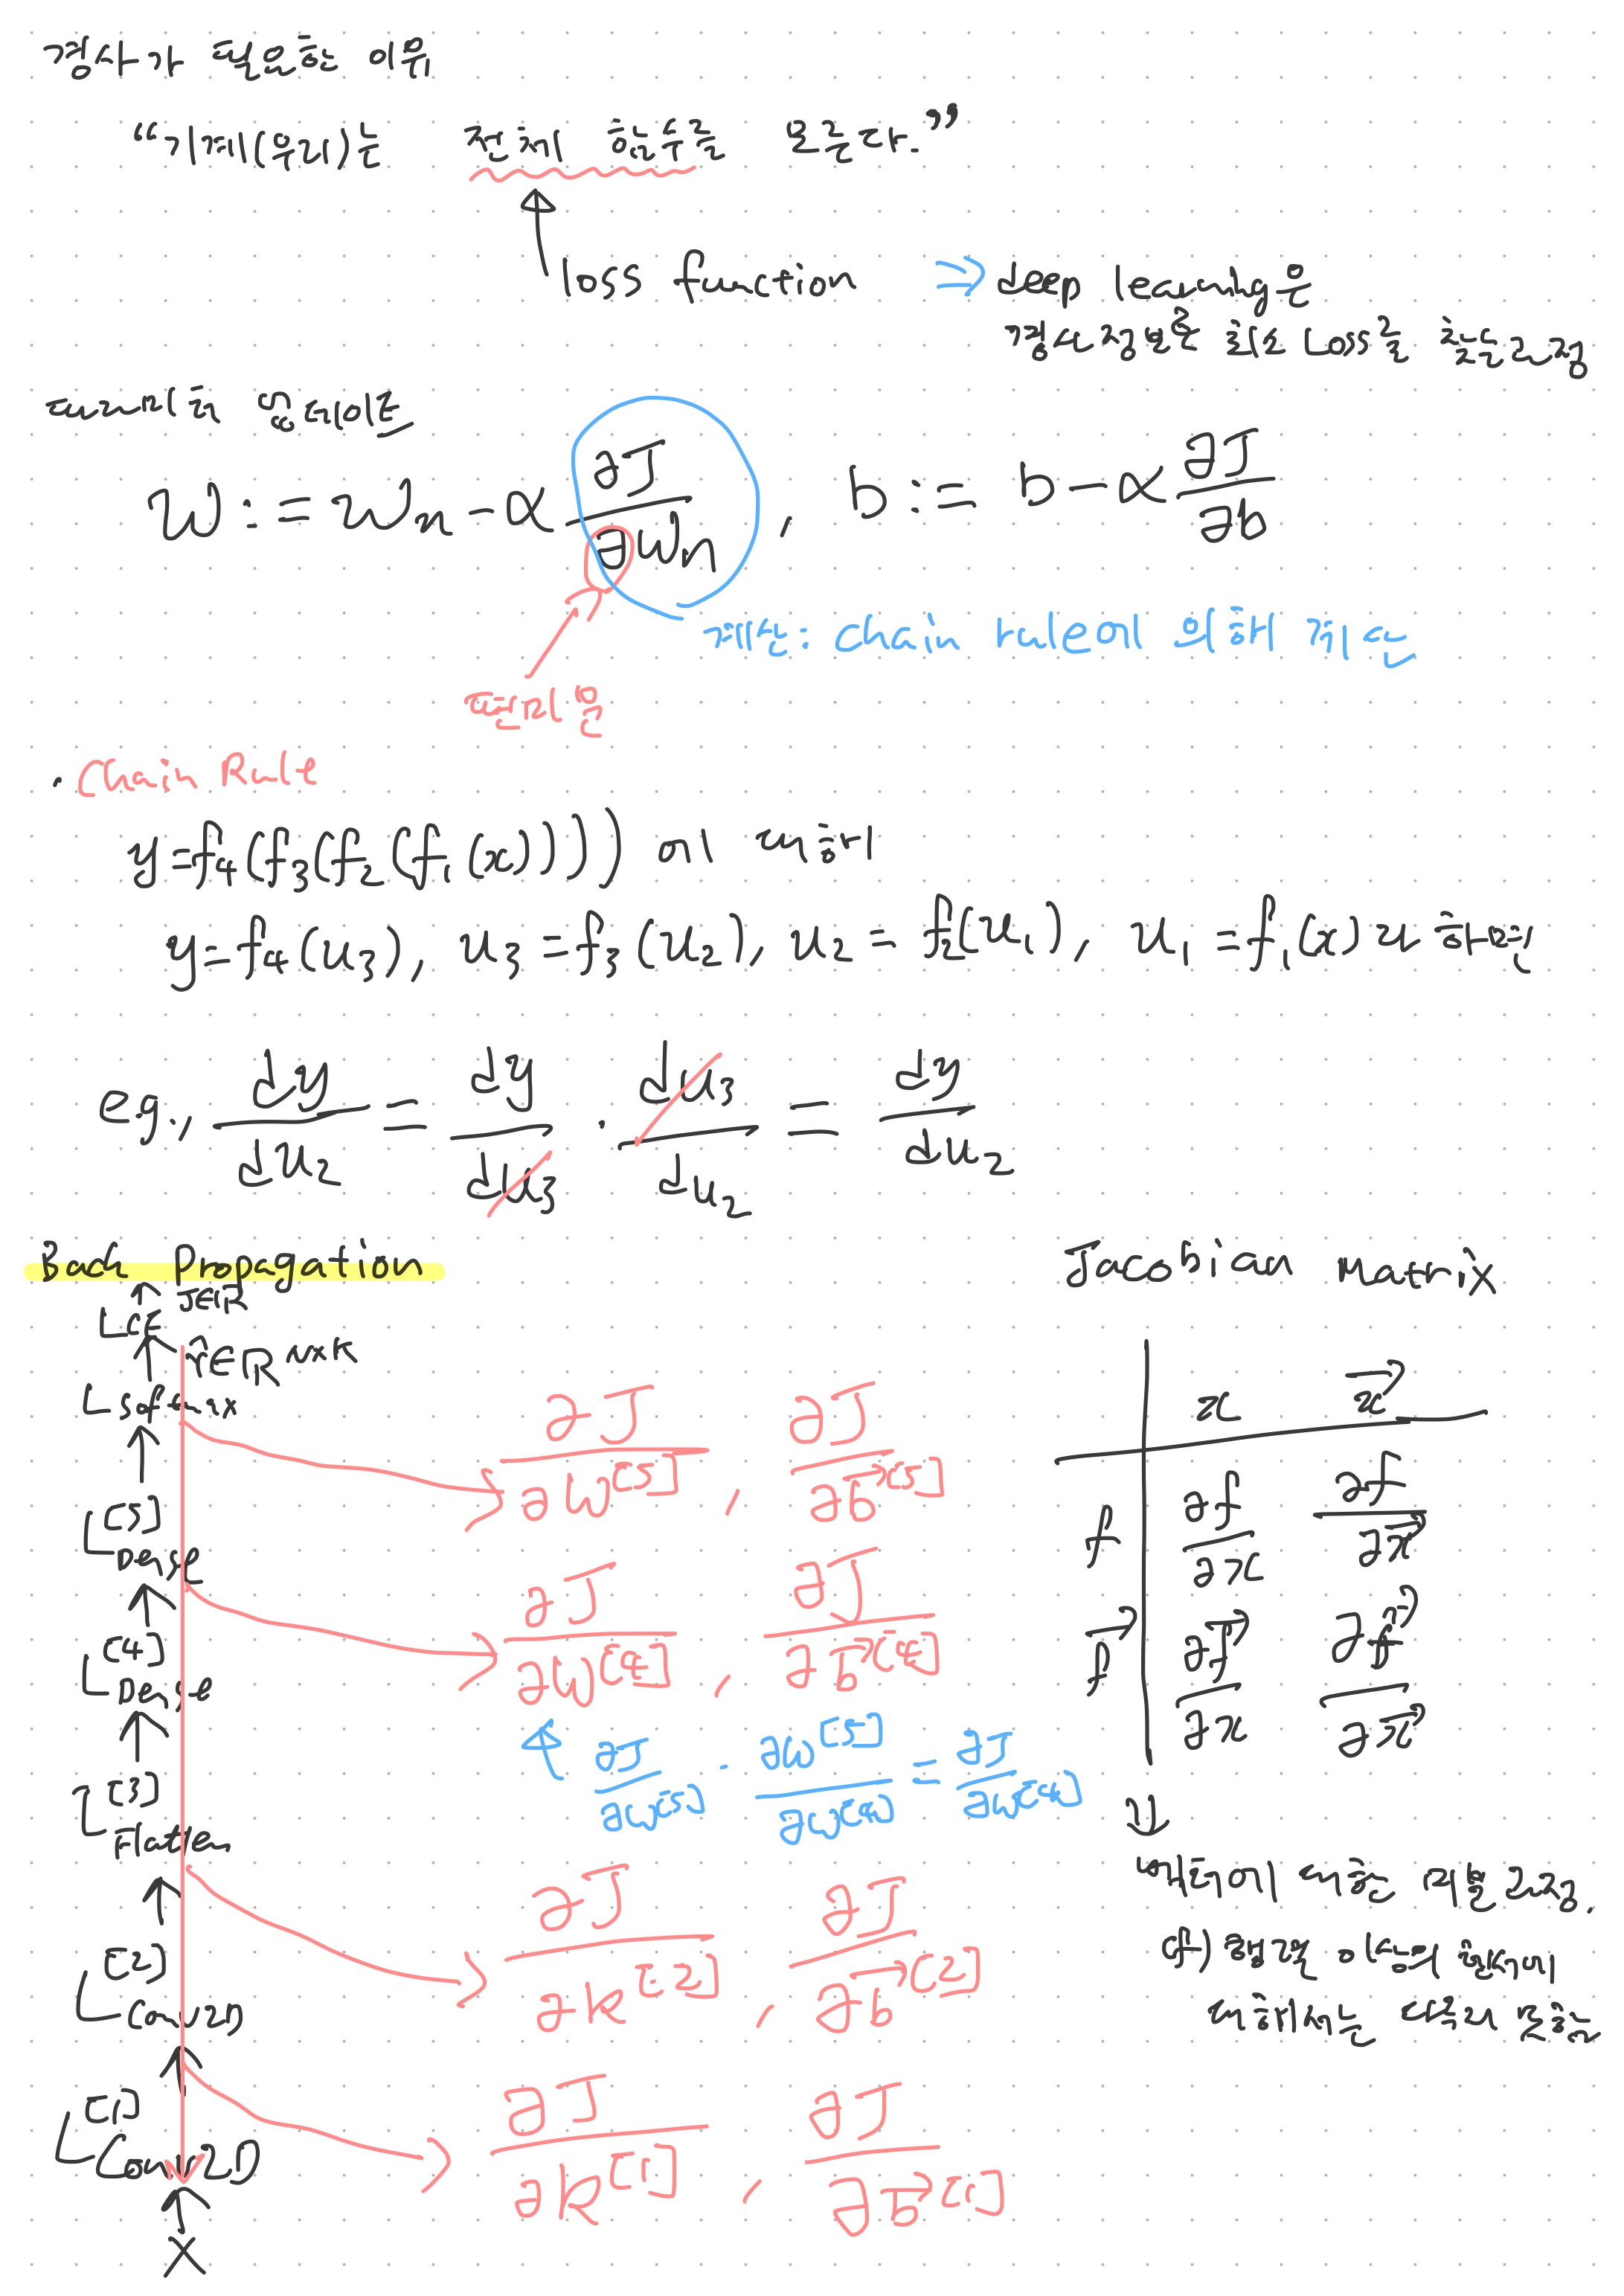 경사가 필요한 이유
“기계(우리)는 전체 함수를 모른다.”
loss function ⇒ deep learning은
경사정보로 최소 Loss를 찾는 과정
파라미터 업데이트
W := W_n - α ∂J/∂W_n , b := b - α ∂J/∂b
계산: Chain rule에 의해 계산
편미분
· Chain Rule
y = f₄(f₃(f₂(f₁(x)))) 에 대해
y = f₄(u₃), u₃ = f₃(u₂), u₂ = f₂(u₁), u₁ = f₁(x)라 하면
e.g., dy/du₂ = dy/du₃ · du₃/du₂ = dy/du₂
Back Propagation
J∈R
CE
Ŷ∈R^(N×K)
Softmax
∂J/∂W^[5] , ∂J/∂b⃗^[5]
[5]
Dense
∂J/∂W^[4] , ∂J/∂b⃗^[4]
[4]
Dense
∂J/∂W^[5] · ∂W^[5]/∂W^[4] = ∂J/∂W^[4]
[3]
Flatten
∂J/∂K^[2] , ∂J/∂b⃗^[2]
[2]
Conv2D
∂J/∂K^[1] , ∂J/∂b⃗^[1]
[1]
Conv2D
X
Jacobian Matrix
x x⃗
f ∂f/∂x ∂f/∂x⃗
f⃗ ∂f⃗/∂x ∂f⃗/∂x⃗
⇓
벡터에 대한 미분 과정.
행렬 이상의
대해서는 다루지 못함